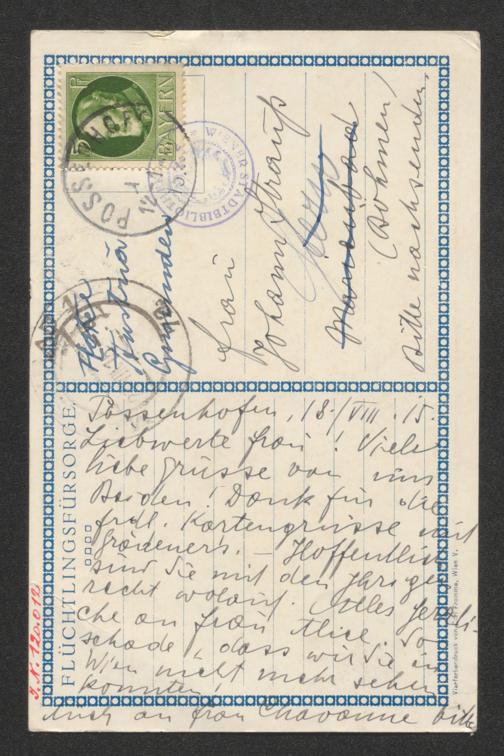 BAYERN
5
POSSENHOFEN
WIENER STADTBIBLIOTHEK
Frau
Johann Strauß
Marienbad
(Böhmen)
Bitte nachsenden.
Hotel
Austria
Gmunden
FLÜCHTLINGSFÜRSORGE
Possenhofen, 18./VIII. 15.
Liebwerte Frau! Viele
liebe Grüsse von uns
Beiden! Dank für die
frdl. Kartengrüsse mit
Grädeners. – Hoffentlich
sind Sie mit den Ihrigen
recht wolauf. Alles Herzli-
che an Frau Alice. So
schade, dass wir Sie in
Wien nicht mehr sehen
konnten!
Auch an Frau Chavanne bitte
J.N. 120.012